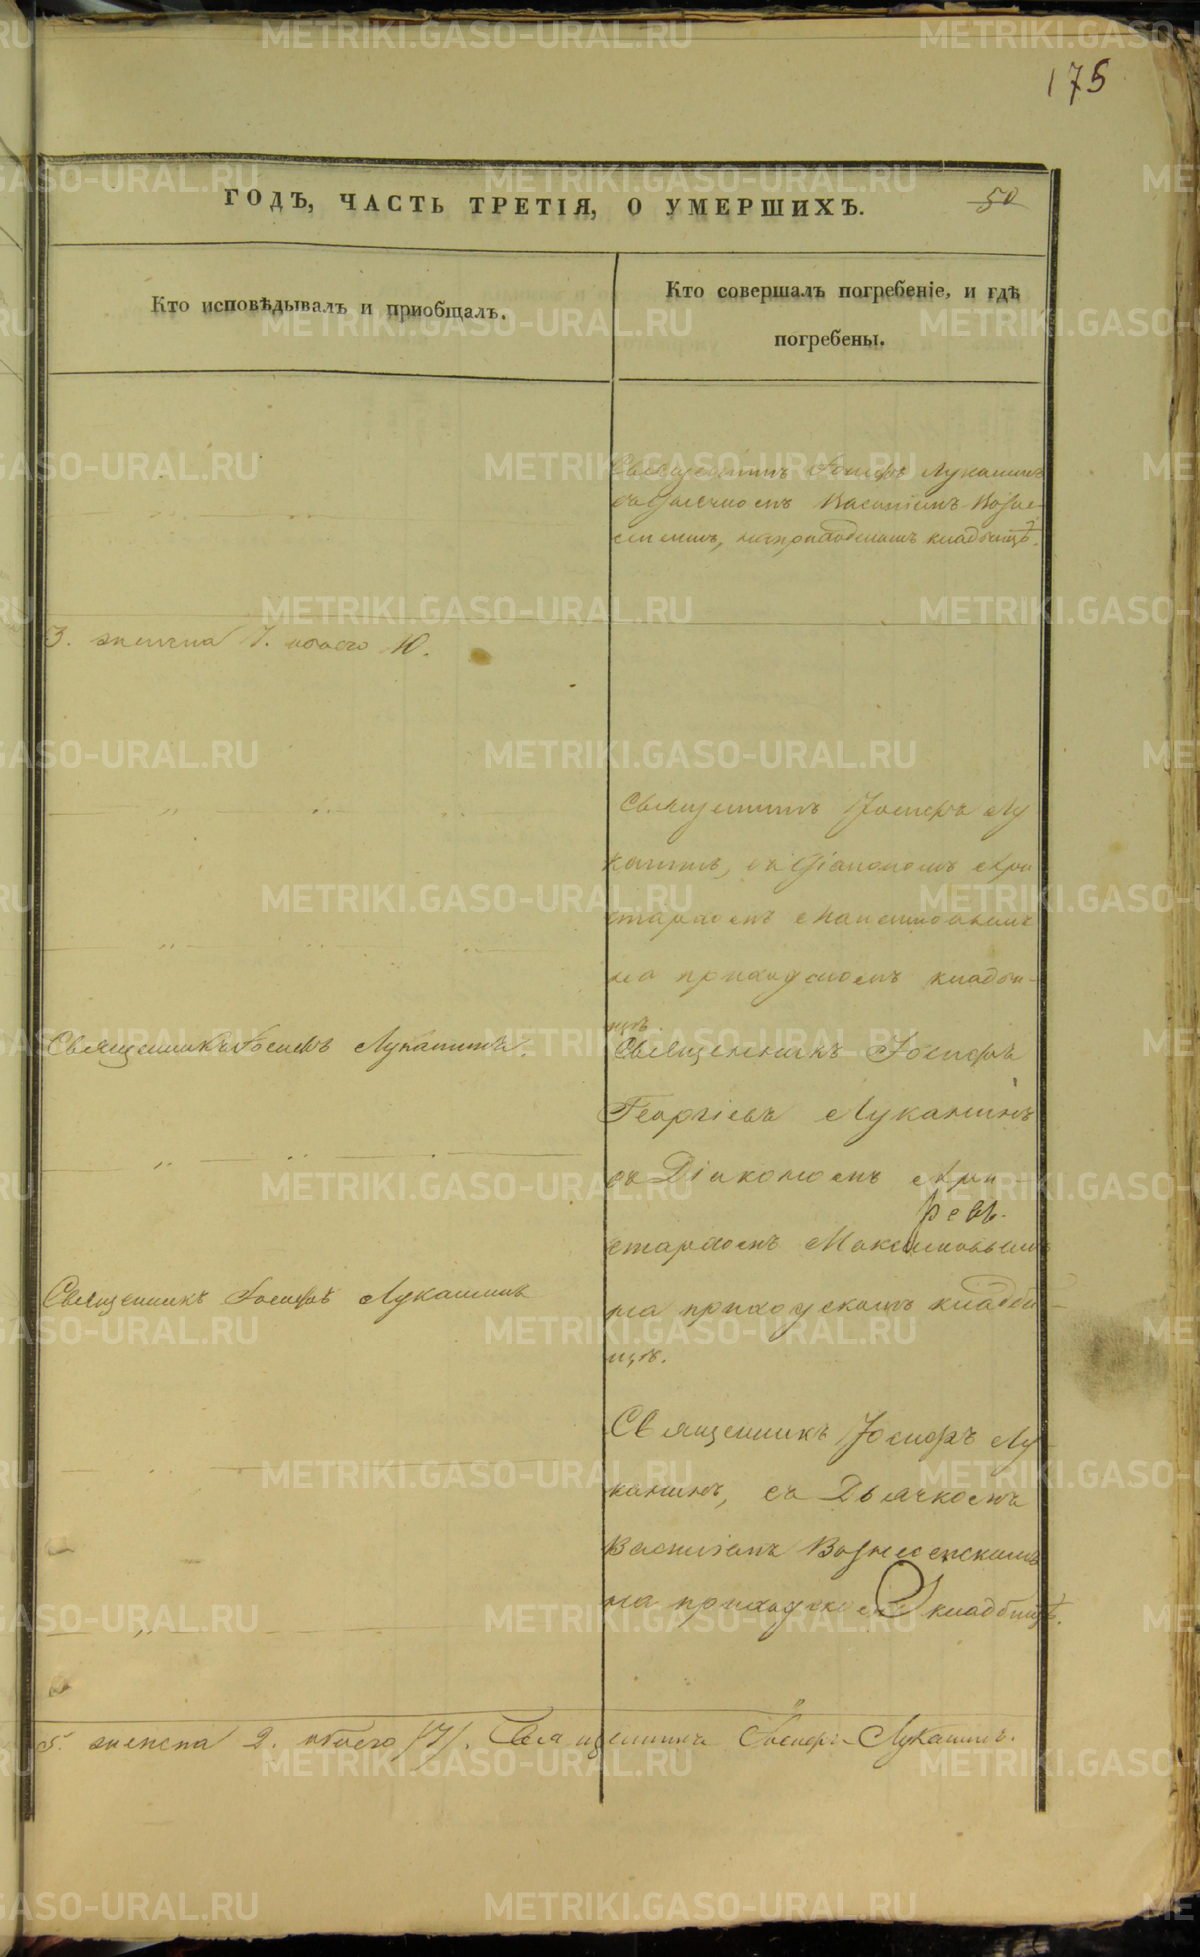 175
ГОДЪ, ЧАСТЬ ТРЕТІЯ, О УМЕРШИХЪ.
50
Кто исповѣдывалъ и приобщалъ.
Кто совершалъ погребеніе, и гдѣ
погребены.
Священникъ Іосифъ Лукашинъ
съ Дьячкомъ Василіемъ Возне-
сенскимъ, на приходскомъ кладбищѣ.
3. женска 7. обоего 10.
Священникъ Іосифъ Лу
кашинъ, съ Діакономъ Ари
стархомъ Максимовымъ
на приходскомъ кладби-
щѣ.
Священникъ Іосифъ Лукашинъ.
Священникъ Іосифъ
Георгіевъ Лукашинъ
съ Діакономъ Ари-
стархомъ Максимовымъ
Священникъ Іосифъ Лукашинъ
на приходскомъ кладби-
щѣ.
Священникъ Іосифъ Лу-
кашинъ, съ Дьячкомъ
Василіемъ Вознесенскимъ
на приходскомъ кладбищѣ.
5. женска 2. обоего /7/. Священникъ Іосифъ Лукашинъ.
METRIKI.GASO-URAL.RU